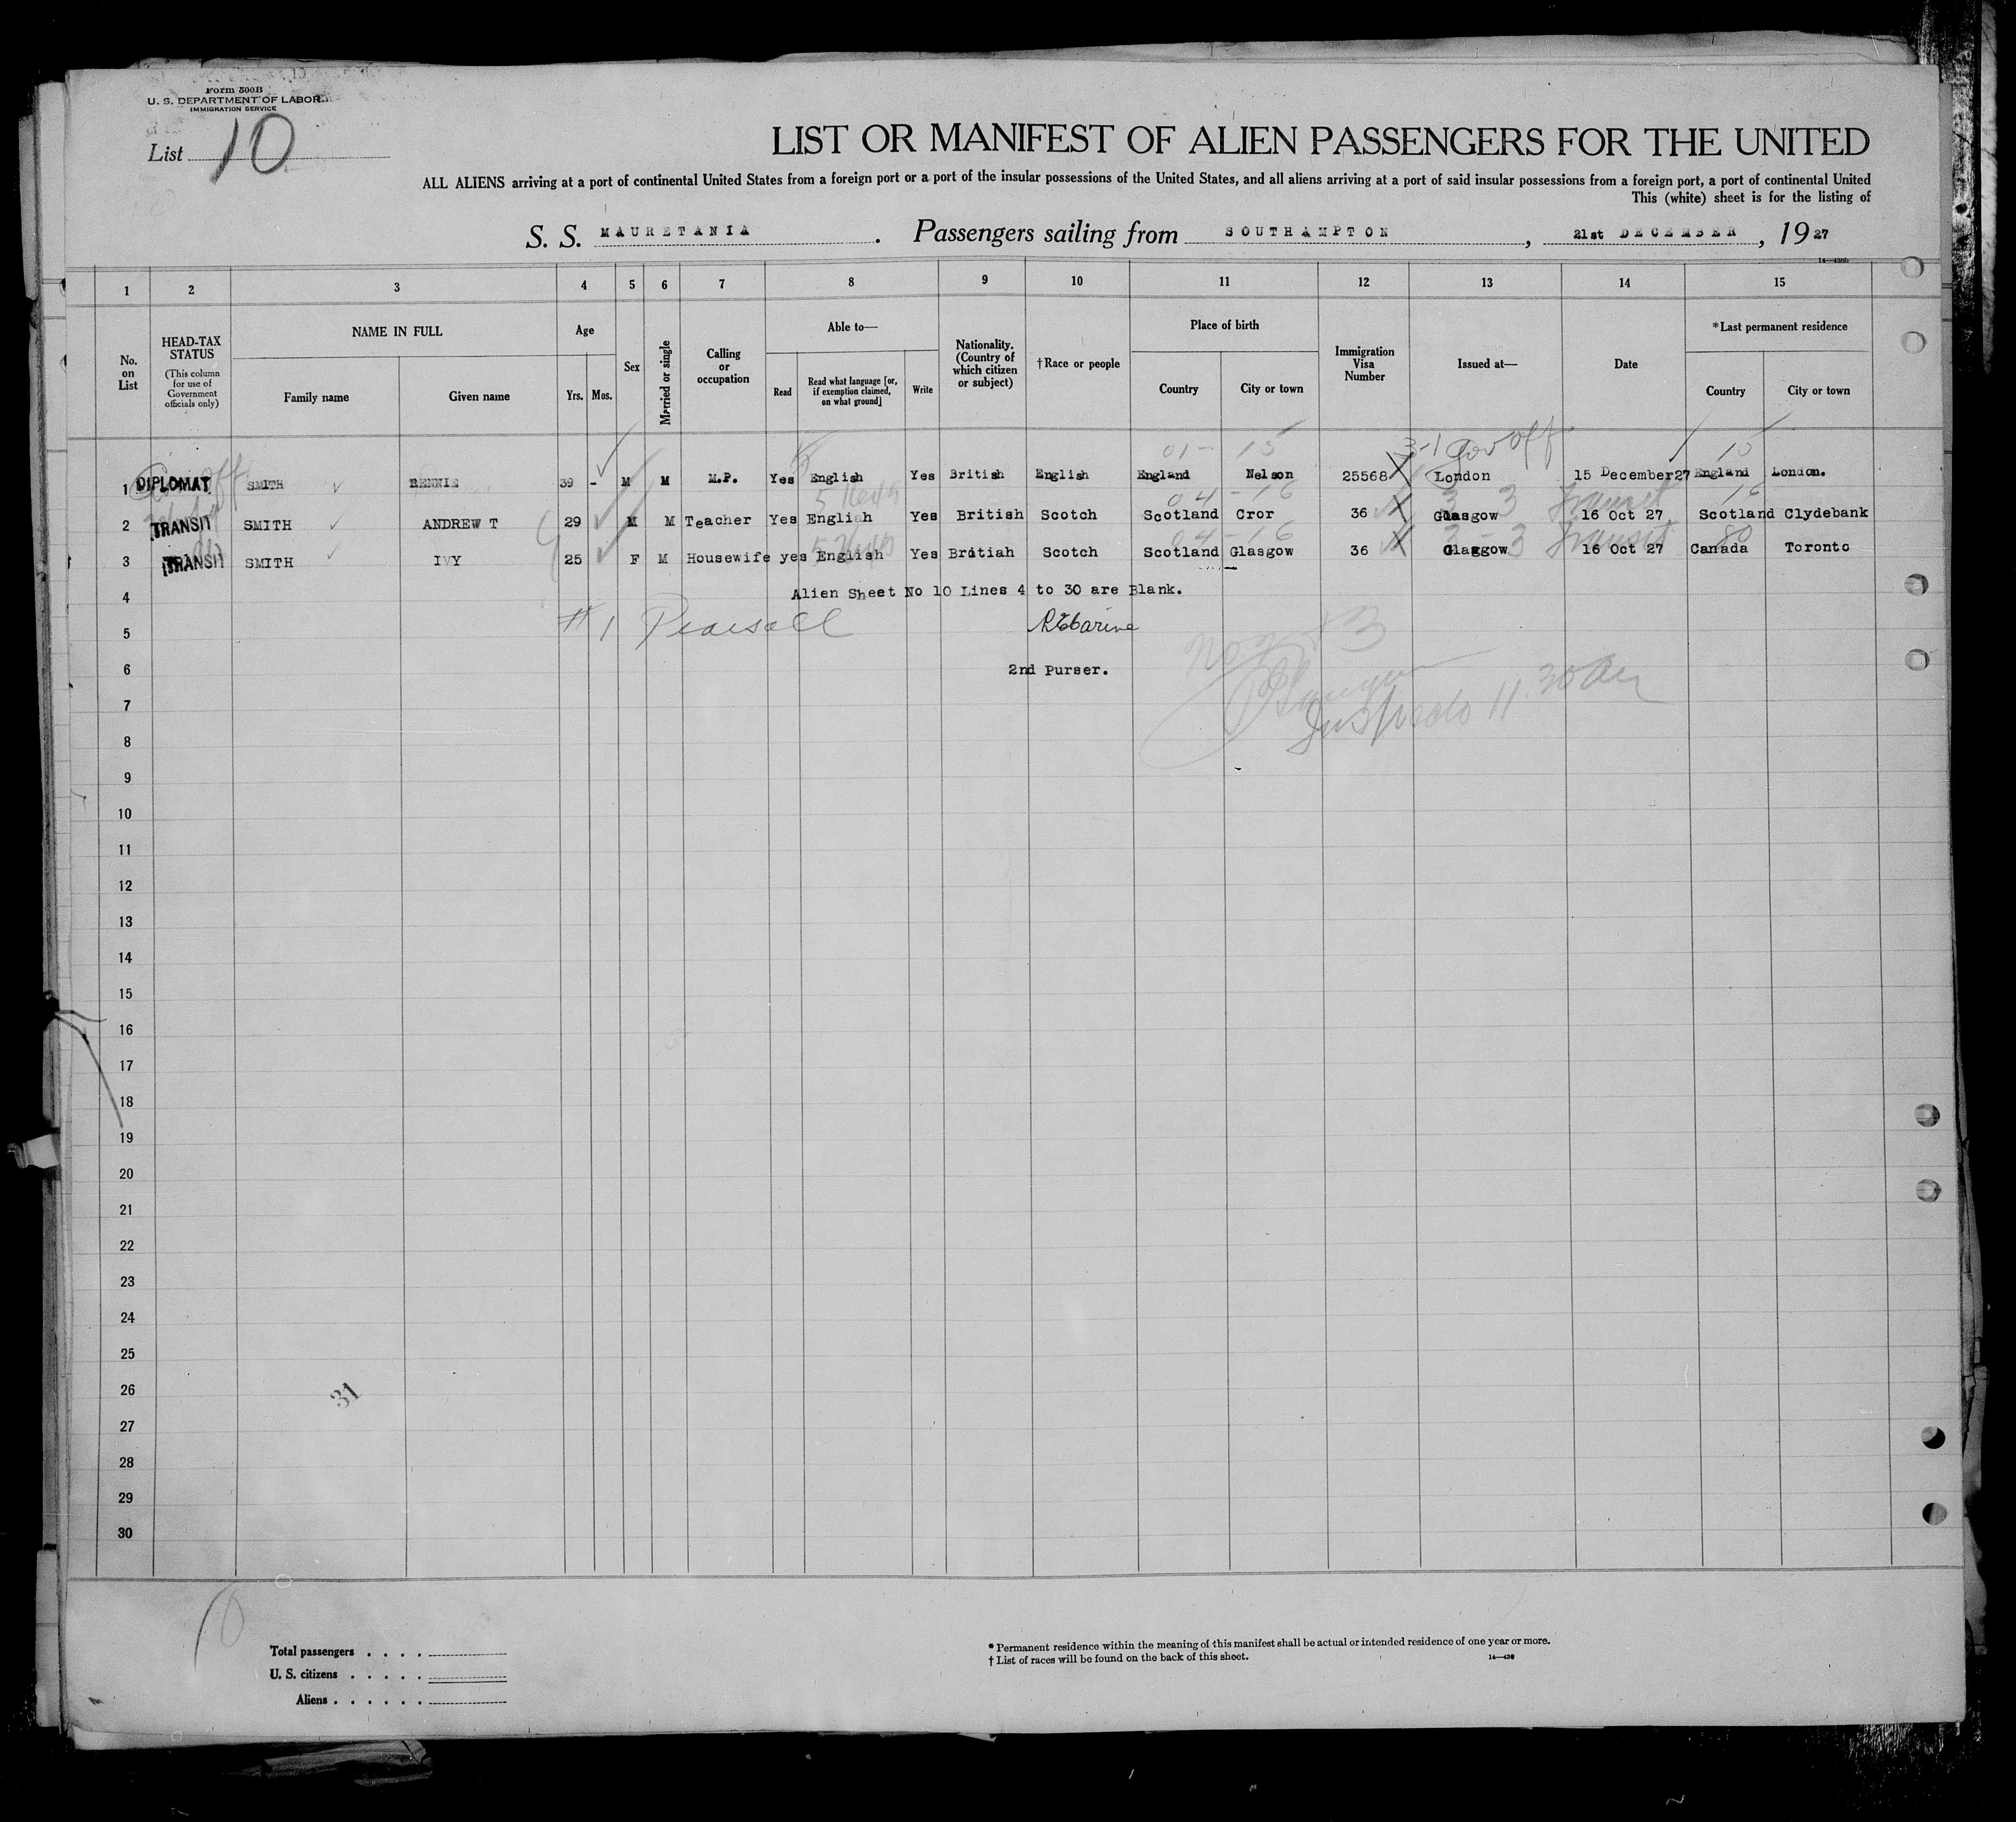 Form 500B
U. S. DEPARTMENT OF LABOR
IMMIGRATION SERVICE
List 10
LIST OR MANIFEST OF ALIEN PASSENGERS FOR THE UNITED
ALL ALIENS arriving at a port of continental United States from a foreign port or a port of the insular possessions of the United States, and all aliens arriving at a port of said insular possessions from a foreign port, a port of continental United
This (white) sheet is for the listing of
S. S. MAURETANIA. Passengers sailing from SOUTHAMPTON, 21st DECEMBER, 1927
1 2 3 4 5 6 7 8 9 10 11 12 13 14 15
No. on List
HEAD-TAX STATUS (This column for use of Government officials only)
NAME IN FULL
Family name Given name
Age
Yrs. Mos.
Sex
Married or single
Calling or occupation
Able to—
Read Read what language [or, if exemption claimed, on what ground] Write
Nationality. (Country of which citizen or subject)
†Race or people
Place of birth
Country City or town
Immigration Visa Number
Issued at—
Date
*Last permanent residence
Country City or town
01 - 15 3-1 Gov off 15
1 DIPLOMAT SMITH RENNIE 39 - M M M.P. Yes English Yes British English England Nelson 25568 London 15 December27 England London.
04 - 16 3 3 Transit 16
2 TRANSIT SMITH ANDREW T 29 M M Teacher Yes English Yes British Scotch Scotland Cror 36 Glasgow 16 Oct 27 Scotland Clydebank
04 - 16 3 - 3 Transit 80
3 TRANSIT SMITH IVY 25 F M Housewife yes English Yes Britiah Scotch Scotland Glasgow 36 Glasgow 16 Oct 27 Canada Toronto
4 Alien Sheet No 10 Lines 4 to 30 are Blank.
5 # 1 Pearsall
6 2nd Purser.
7 11.30 am
8
9
10
11
12
13
14
15
16
17
18
19
20
21
22
23
24
25
26
31
27
28
29
30
10
Total passengers . . . .
U. S. citizens . . . . .
Aliens . . . . . .
* Permanent residence within the meaning of this manifest shall be actual or intended residence of one year or more.
† List of races will be found on the back of this sheet.
14—430